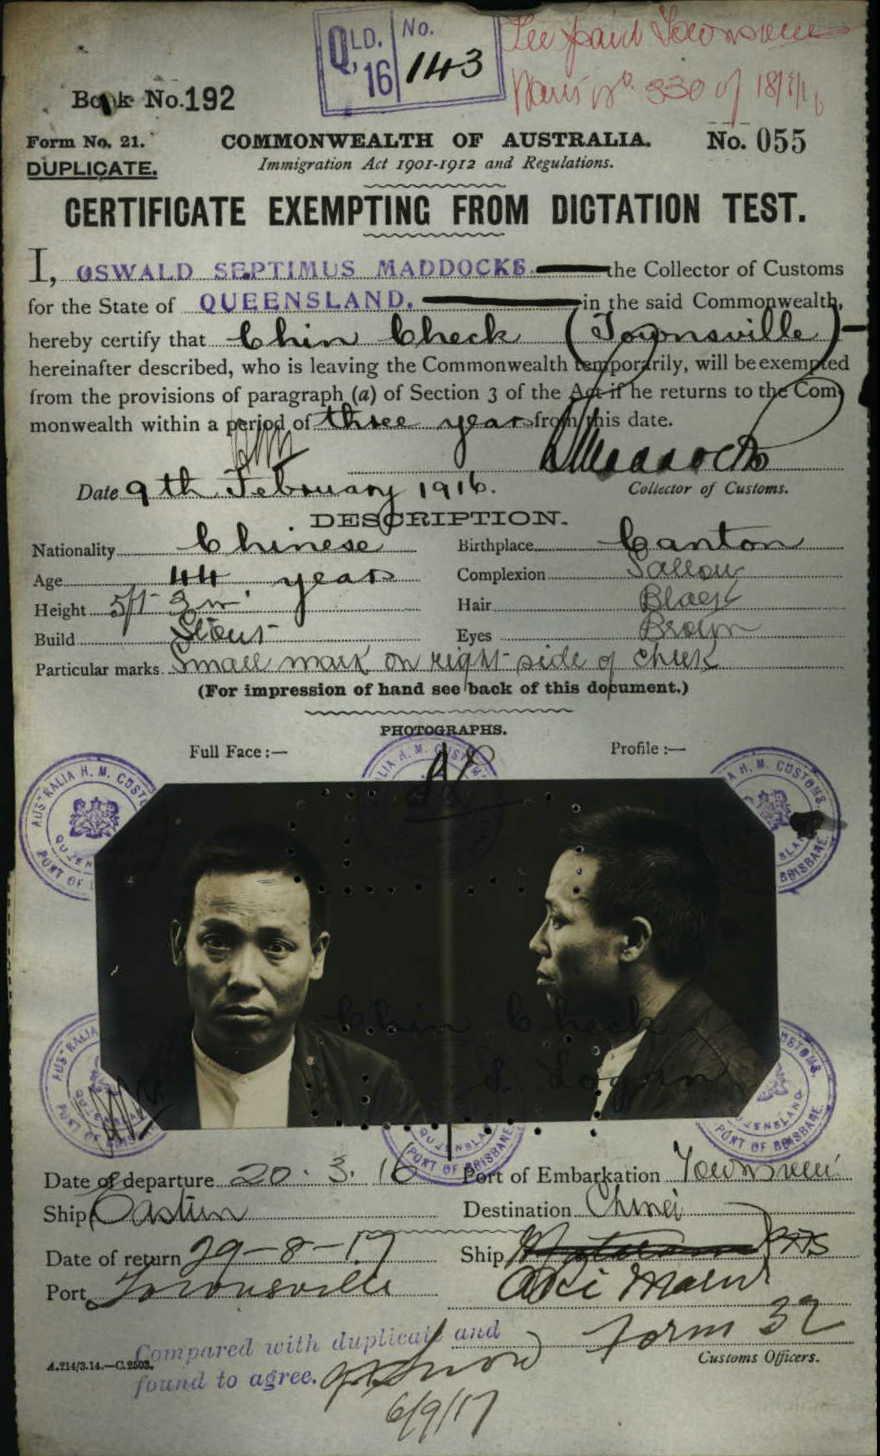 QLD. No.
'16 143
Book No. 192
Form No. 21. COMMONWEALTH OF AUSTRALIA. No. 055
DUPLICATE. Immigration Act 1901-1912 and Regulations.
CERTIFICATE EXEMPTING FROM DICTATION TEST.
I, OSWALD SEPTIMUS MADDOCKS the Collector of Customs
for the State of QUEENSLAND. in the said Commonwealth,
hereby certify that Chin Check (Townsville)
hereinafter described, who is leaving the Commonwealth temporarily, will be exempted
from the provisions of paragraph (a) of Section 3 of the Act if he returns to the Com-
monwealth within a period of three years from this date.
Maddocks
Date 9th February 1916. Collector of Customs.
DESCRIPTION.
Nationality Chinese Birthplace Canton
Age 44 years Complexion Sallow
Height 5ft 3in Hair Black
Build Stout Eyes Brown
Particular marks Small mark on right side of cheek
(For impression of hand see back of this document.)
PHOTOGRAPHS.
Full Face :— Profile :—
AUSTRALIA H. M. CUSTOMS. QUEENSLAND PORT OF BRISBANE
Chin Check
Date of departure 20. 3. 16 Port of Embarkation Townsville
Ship Eastern Destination China
Date of return 29-8-17 Ship
Port Townsville Aki Maru
Form 32
Compared with duplicate and
A.214/3.14.—C.2503. Customs Officers.
found to agree.
6/9/17